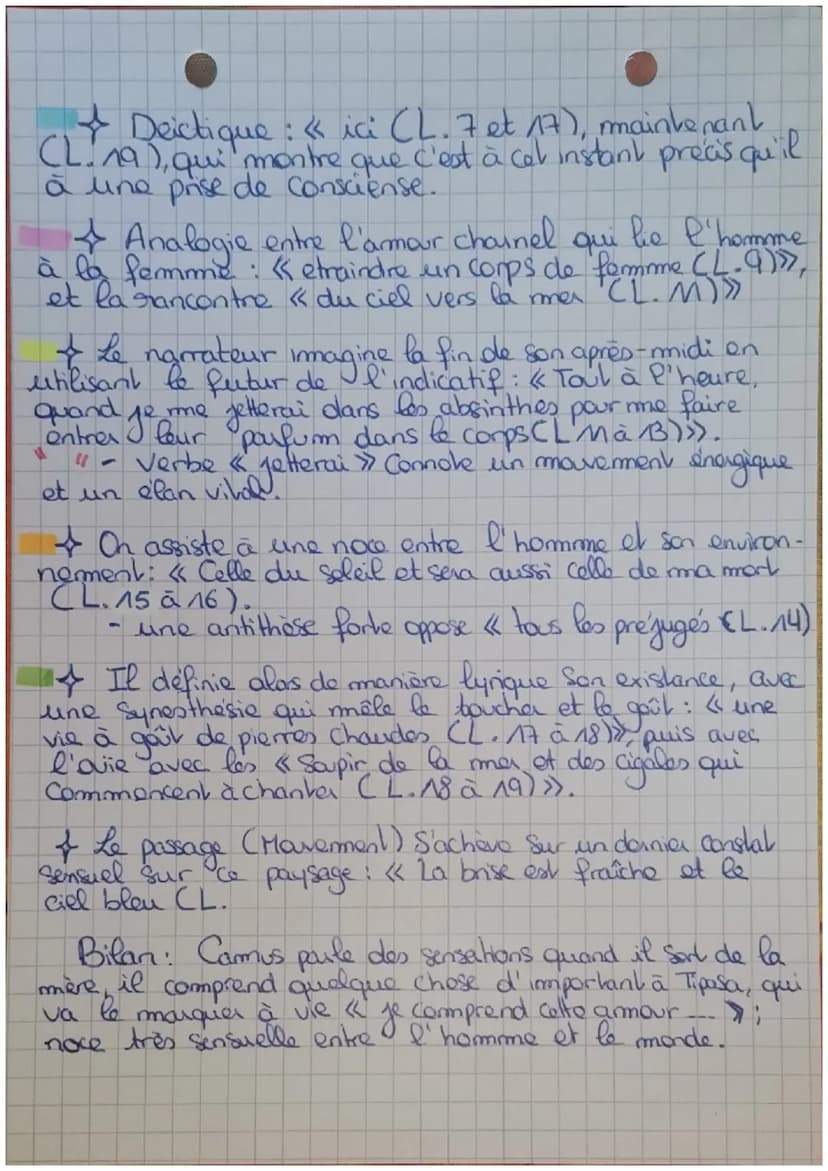 ✧ Deictique : « ici (L. 7 et 17), maintenant
(L. 19), qui montre que c'est à cet instant précis qu'il
à une prise de consciense.
✧ Analogie entre l'amour charnel qui lie l'homme
à la femme : « etraindre un corps de femme (L.9)»,
et la rencontre « du ciel vers la mer (L. 11)»
✧ Le narrateur imagine la fin de son après-midi en
utilisant le futur de l'indicatif : « Tout à l'heure,
quand je me jetterai dans les absinthes pour me faire
entrer leur parfum dans le corps (L 11 à 13)».
" " - Verbe « jetterai » Connote un mouvement énergique
et un élan vital.
✧ On assiste à une noce entre l'homme et son environ-
nement : « Celle du soleil et sera aussi celle de ma mort
(L. 15 à 16).
- une antithèse forte oppose « tous les préjugés (L. 14)
✧ Il définie alors de manière lyrique son existance, avec
une synesthésie qui mêle le toucher et le goût : « une
vie à goût de pierres chaudes (L. 17 à 18)», puis avec
l'ouïe avec les « Soupir de la mer et des cigales qui
Commencent à chanter (L. 18 à 19)».
✧ Le passage (Mouvement) S'achève sur un dernier constat
sensuel sur ce paysage : « La brise est fraîche et le
ciel bleu (L.
Bilan : Camus parle des sensations quand il sort de la
mère, il comprend quelque chose d'important à Tipasa, qui
va le marquer à vie « je comprend cette amour --- » ;
noce très sensuelle entre l'homme et le monde.